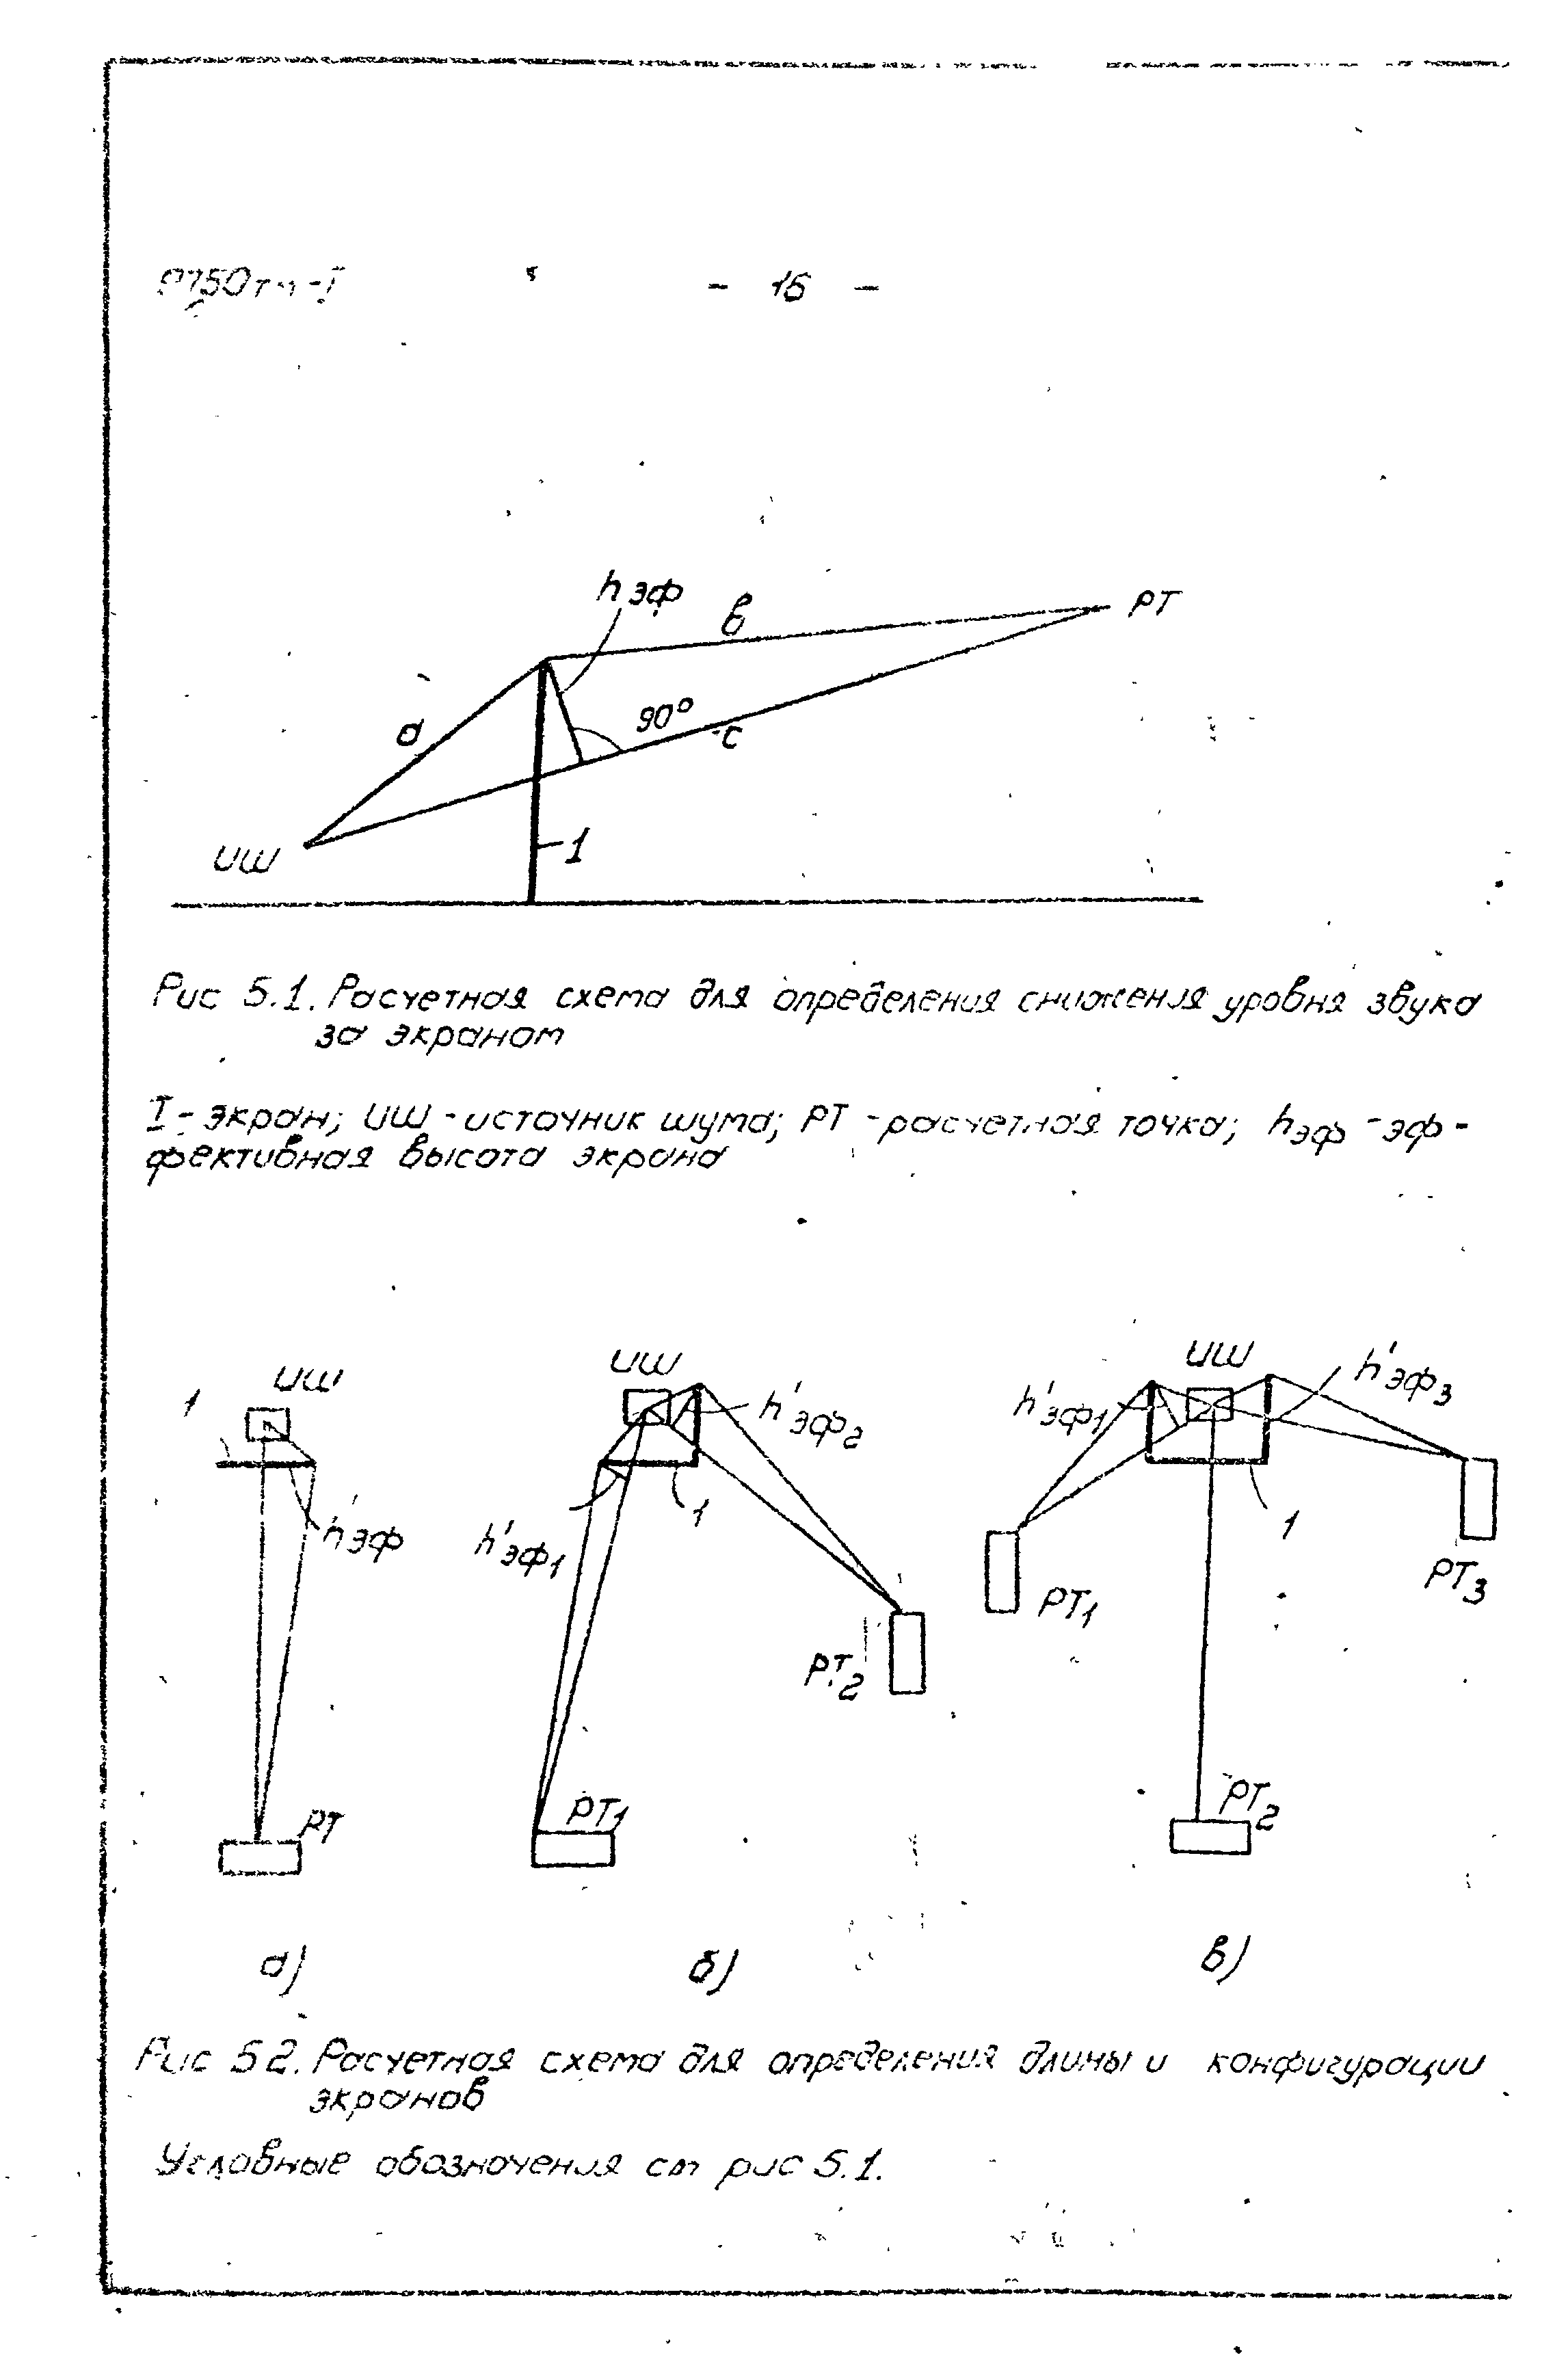 - 16 -
hэф
в
РТ
а
90°
с
ИШ
1
Рис 5.1. Расчетная схема для определения снижения уровня звука
за экраном
I - экран; ИШ - источник шума; РТ - расчетная точка; hэф - эф-
фективная высота экрана
ИШ
1
h'эф
РТ
ИШ
h'эф2
h'эф1
1
РТ2
РТ1
ИШ
h'эф1
h'эф3
1
РТ1
РТ3
РТ2
а)
б)
в)
Рис 5 2. Расчетная схема для определения длины и конфигурации
экранов
Условные обозначения см рис 5.1.